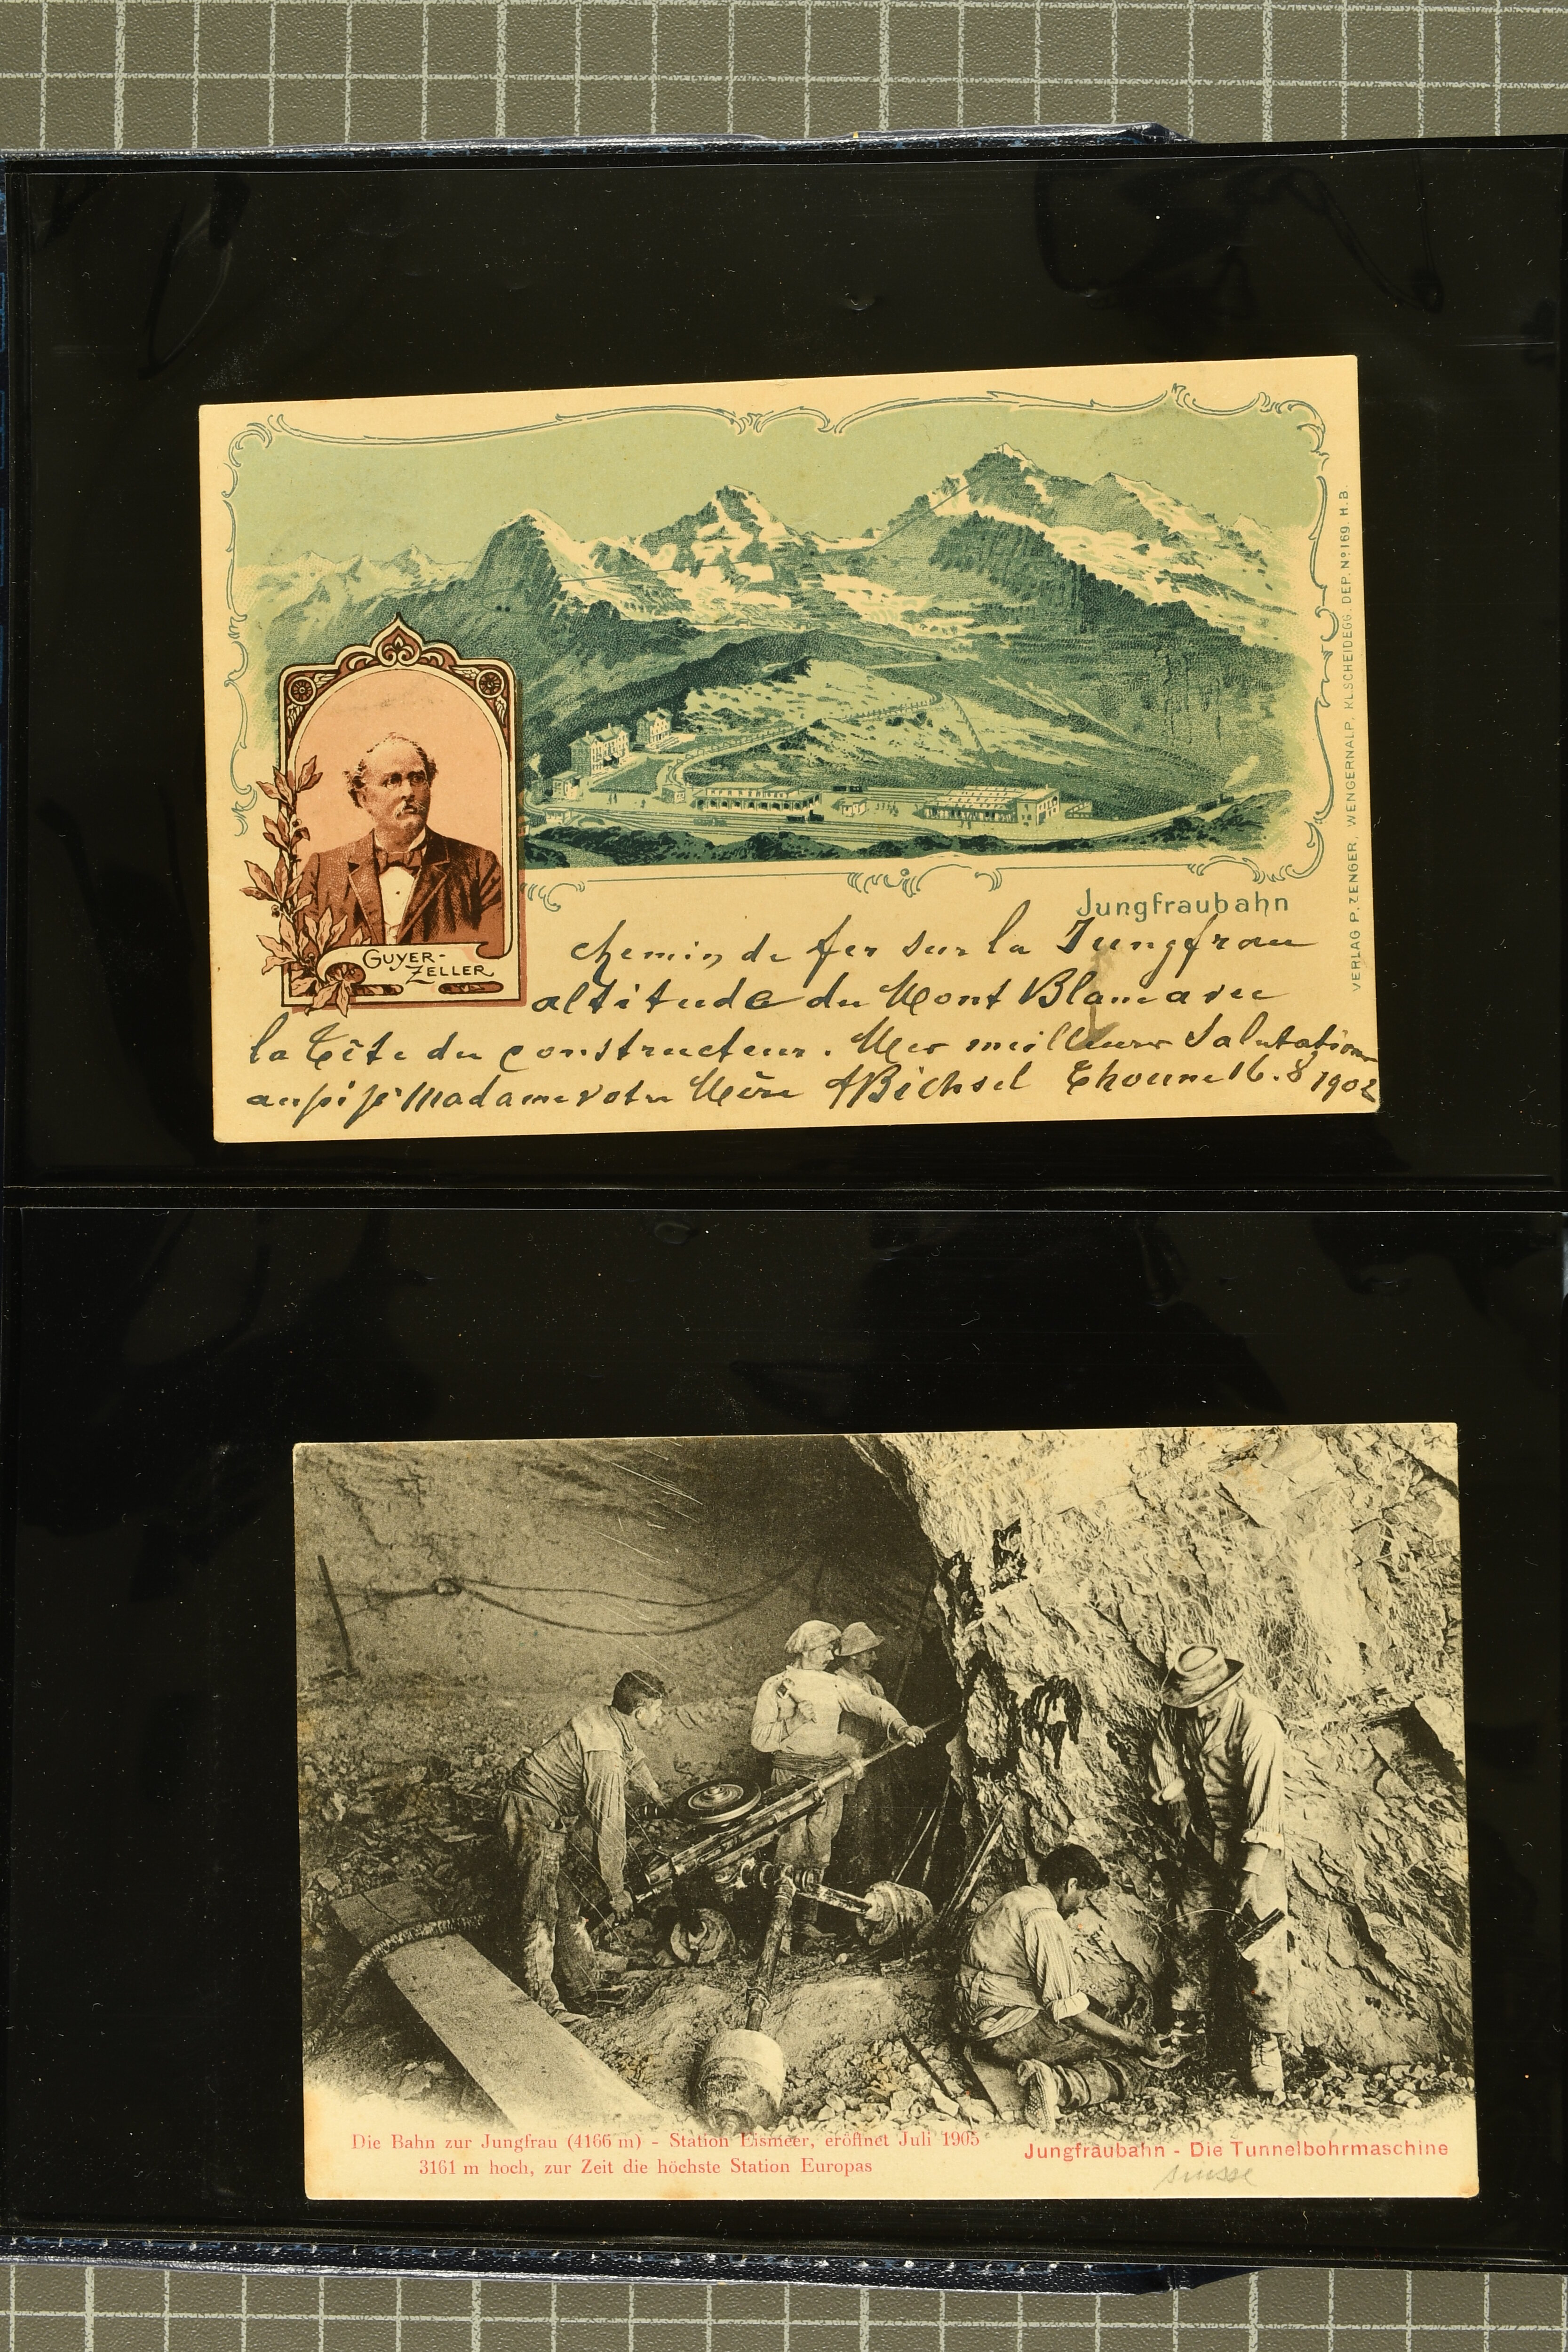 Jungfraubahn
GUYER-
ZELLER
VERLAG P. ZENGER, WENGERNALP, KL. SCHEIDEGG. DEP. Nº 169 H.B.
chemin de fer sur la Jungfrau
altitude du Mont Blanc avec
la Tête du constructeur. Mes meilleures Salutations
Madame votre Mère ABichsel Thoune 16.8 1902
Die Bahn zur Jungfrau (4166 m) - Station Eismeer, eröffnet Juli 1905
3161 m hoch, zur Zeit die höchste Station Europas
Jungfraubahn - Die Tunnelbohrmaschine
suisse